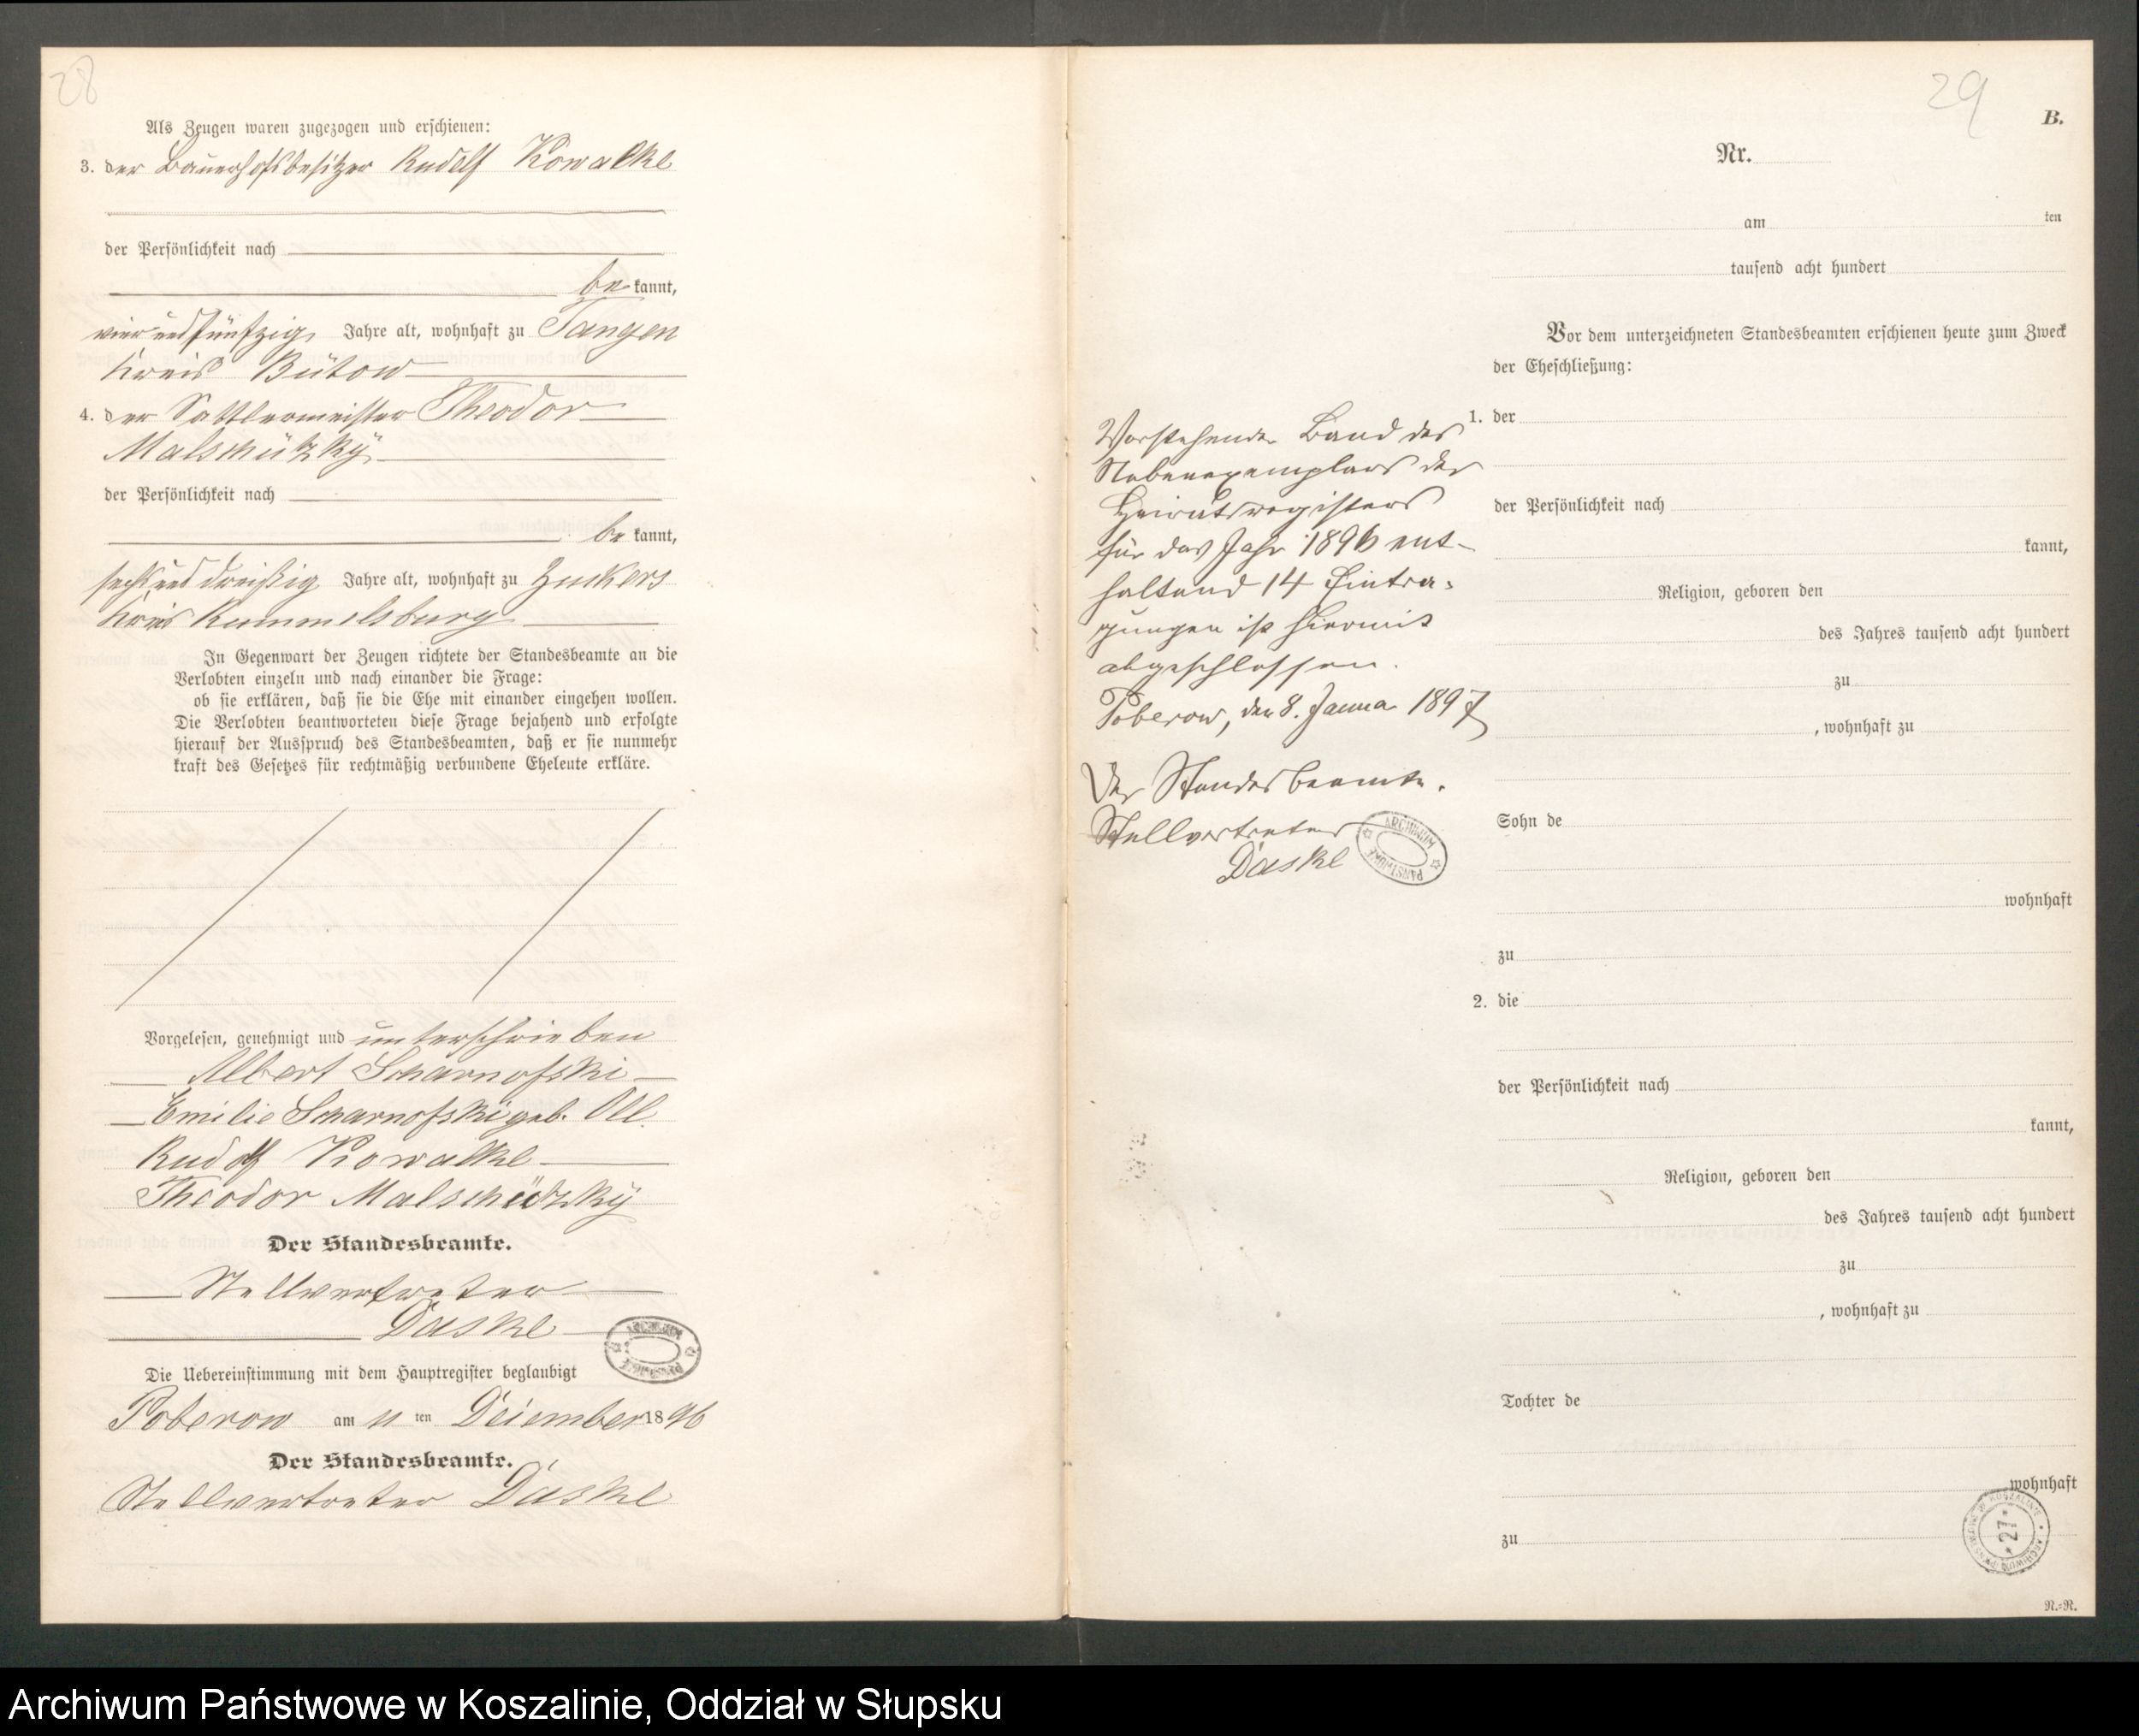 28
Als Zeugen waren zugezogen und erschienen:
3. der Bauerhofsbesitzer Rudolf Kowalke
der Persönlichkeit nach
be kannt,
vier und fünfzig Jahre alt, wohnhaft zu Tangen
Kreis Bütow
4. der Sattlermeister Theodor
Malschützky
der Persönlichkeit nach
be kannt,
sechs und dreißig Jahre alt, wohnhaft zu Zuckers
Kreis Rummelsburg
In Gegenwart der Zeugen richtete der Standesbeamte an die
Verlobten einzeln und nach einander die Frage:
ob sie erklären, daß sie die Ehe mit einander eingehen wollen.
Die Verlobten beantworteten diese Frage bejahend und erfolgte
hierauf der Ausspruch des Standesbeamten, daß er sie nunmehr
kraft des Gesetzes für rechtmäßig verbundene Eheleute erkläre.
Vorgelesen, genehmigt und unterschrieben
Albert Scharnofski
Emilie Scharnofski geb. Oll
Rudolf Kowalke
Theodor Malschützky
Der Standesbeamte.
Stellvertreter
Daske
ARCHIWUM PAŃSTWOWE
Die Uebereinstimmung mit dem Hauptregister beglaubigt
Poberow am 11 ten Dezember 1896
Der Standesbeamte.
Stellvertreter Daske
29
B.
Nr.
am ten
tausend acht hundert
Vor dem unterzeichneten Standesbeamten erschienen heute zum Zweck
der Eheschließung:
1. der
der Persönlichkeit nach
kannt,
Religion, geboren den
des Jahres tausend acht hundert
zu
, wohnhaft zu
Sohn de
wohnhaft
zu
2. die
der Persönlichkeit nach
kannt,
Religion, geboren den
des Jahres tausend acht hundert
zu
, wohnhaft zu
Tochter de
wohnhaft
zu
Vorstehender Band des
Nebenexemplars des
Heiratsregisters
für das Jahr 1896 ent-
haltend 14 Eintra-
gungen ist hiermit
abgeschlossen.
Poberow, den 8. Januar 1897
Der Standesbeamte.
Stellvertreter
Daske
ARCHIWUM PAŃSTWOWE
ARCHIWUM PAŃSTWOWE W KOSZALINIE
* 27 *
N.=N.
Archiwum Państwowe w Koszalinie, Oddział w Słupsku